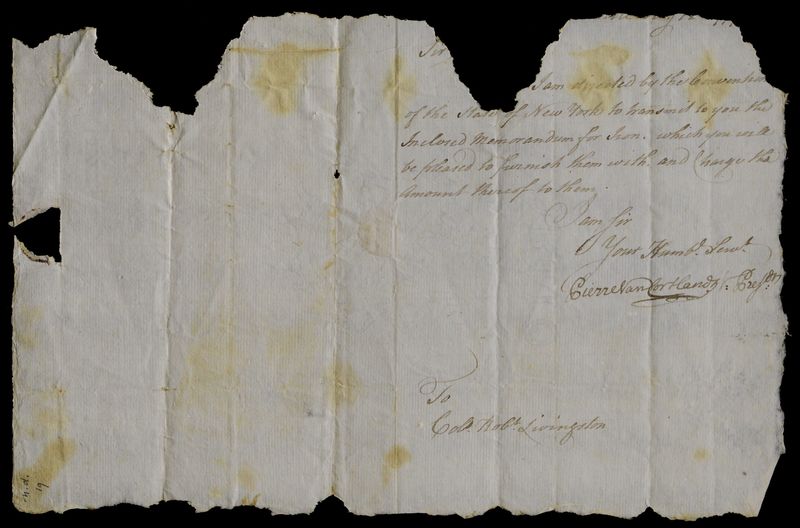 Sir
I am directed by the Convention
of the State of New York to transmit to you the
Inclosed Memorandum for Iron. which you will
be pleased to furnish them with. and Charge the
Amount thereof to them.
I am Sir
Your Humbl. Servt.
Pierre Van Cortlandt Presdt.
To
Colo. Robt. Livingston
n.d.
19